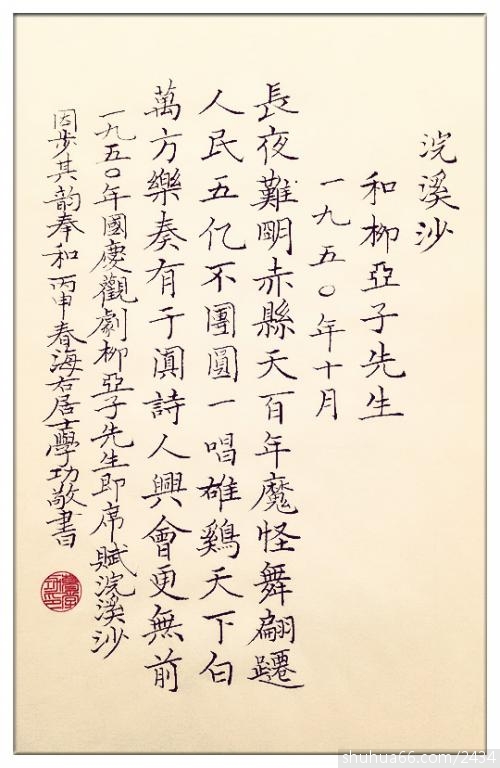 浣溪沙
和柳亞子先生
一九五〇年十月
長夜難明赤縣天百年魔怪舞翩躚
人民五亿不團圓一唱雄鷄天下白
萬方樂奏有于阗詩人興會更無前
一九五〇年國慶觀劇柳亞子先生即席賦浣溪沙
因步其韵奉和丙申春海右居士學功敬書
shuhua66.com/2434